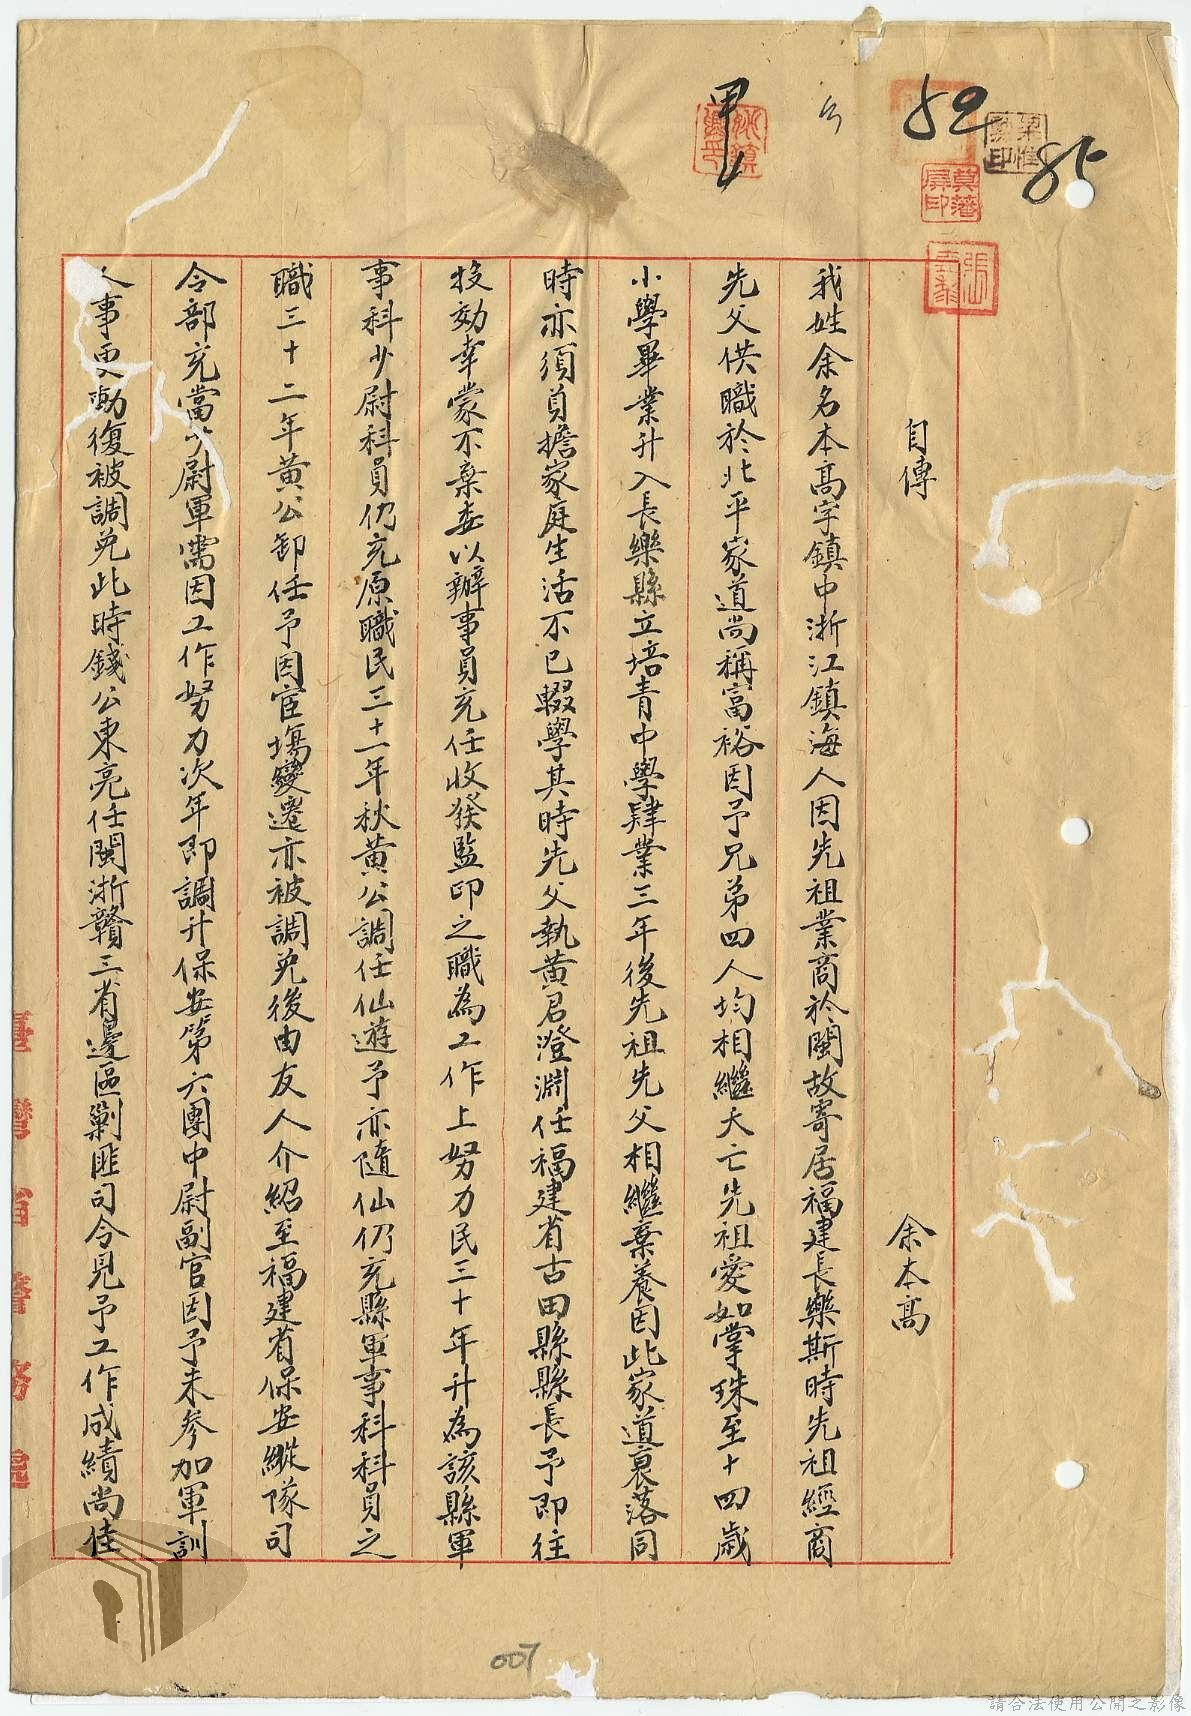 甲
52
85
自傳
余本高
我姓余名本高字鎮中浙江鎮海人因先祖業商於閩故寄居福建長樂斯時先祖經商
先父供職於北平家道尚稱富裕因予兄弟四人均相繼夭亡先祖愛如掌珠至十四歲
小學畢業升入長樂縣立培青中學肄業三年後先祖先父相繼棄養因此家道衰落同
時亦須負擔家庭生活不已輟學其時先父執黃君澄淵任福建省古田縣縣長予即往
投効幸蒙不棄委以辦事員充任收發監印之職為工作上努力民三十年升為該縣軍
事科少尉科員仍充原職民三十一年秋黃公調任仙遊予亦隨仙仍充縣軍事科科員之
職三十二年黃公卸任予因宦場變遷亦被調免後由友人介紹至福建省保安縱隊司
令部充當少尉軍需因工作努力次年即調升保安第六團中尉副官因予未參加軍訓
人事更動復被調免此時錢公東亮任閩浙贛三省邊區剿匪司令見予工作成績尚佳
臺灣省警務處
007
請合法使用公開之影像